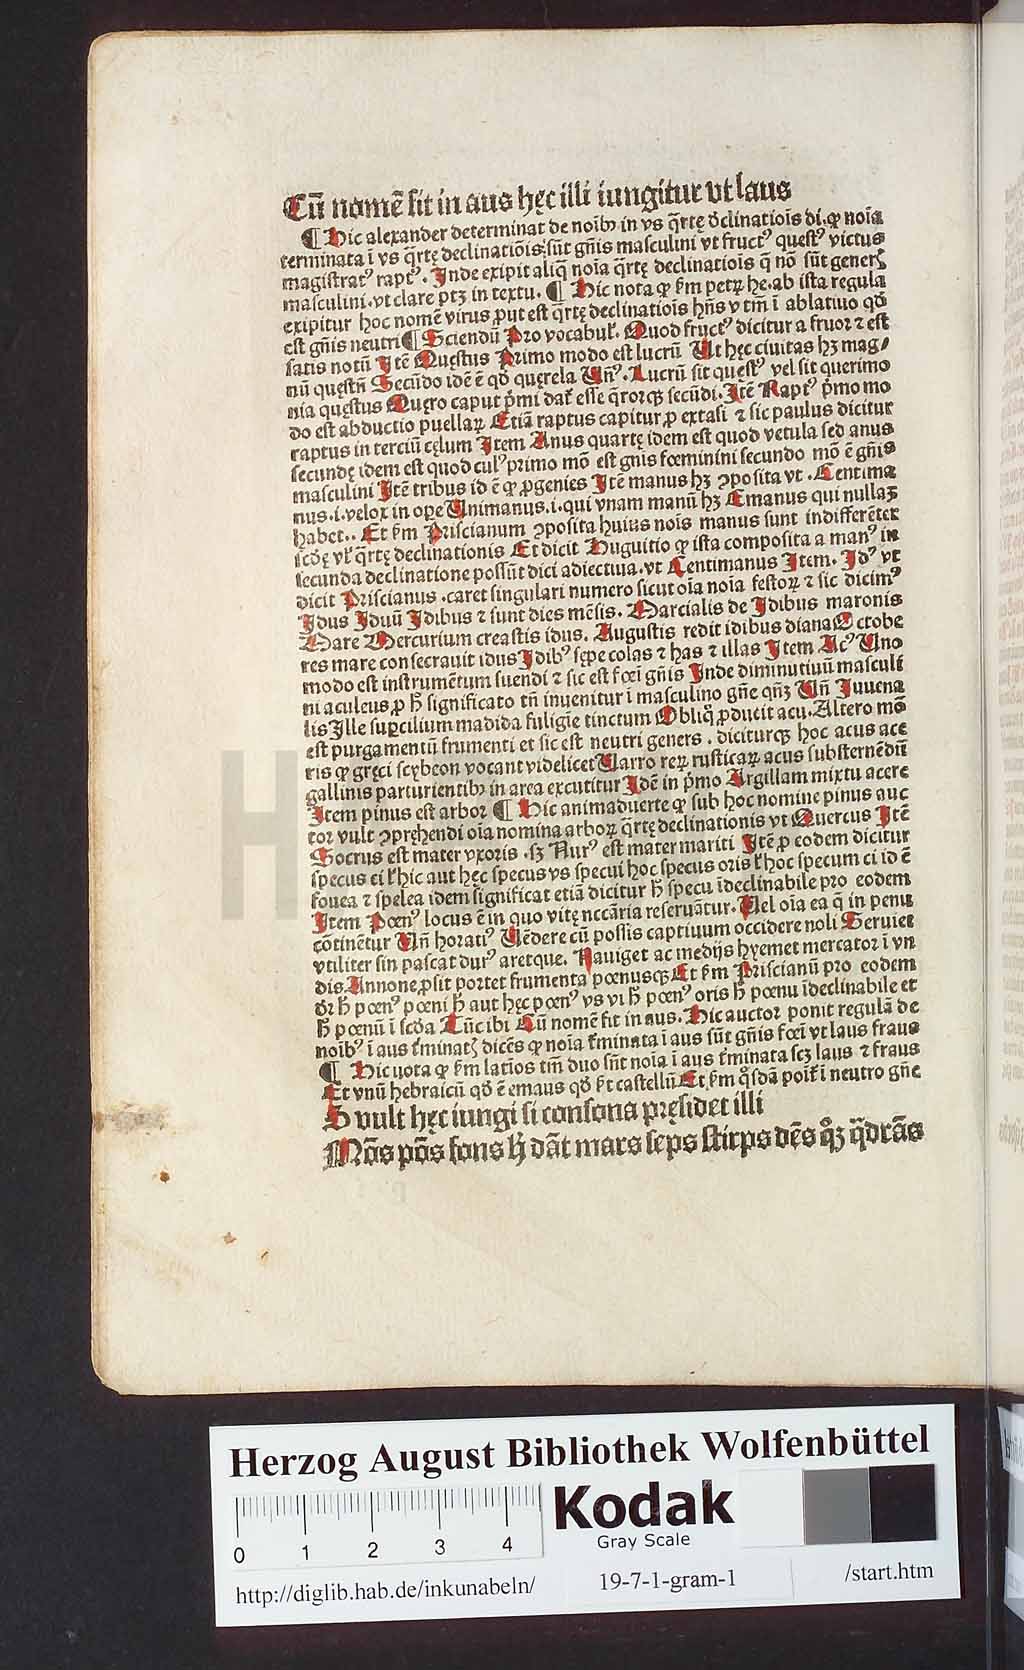 Cū nomē fit in aus hęc illi iungitur vt laus
¶ Hic alexander determinat de noībꝰ in vs q̄rtę dclinatiōis di. ꝙ noīa
terminata ī vs q̄rtę declinatiōis: sūt gn̄is masculini vt fructꝰ questꝰ victus
magistratꝰ raptꝰ. Inde exipit aliq̄ noīa q̄rtę declinatiōis q̄ nō sūt generꝭ
masculini. vt clare ptꝫ in textu. ¶ Hic nota ꝙ ẜm petrꝫ he. ab ista regula
exipitur hoc nomē virus ꝓut est q̄rtę declinatiōis hn̄s v tm̄ ī ablatiuo qd̄
est gn̄is neutri ¶ Sciendū Pro vocabul. Quod fructꝰ dicitur a fruor ⁊ est
satis notū Itē Quęstus Primo modo est lucrū Ut hęc ciuitas hꝫ mag/
nū quęstū Secūdo idē ē qd̄ quęrela Un̄ꝰ. Lucrū sit questꝰ vel sit querimo
nia quęstus Quęro caput p̄mi dat esse q̄rorqꝫ secūdi. Itē Raptꝰ p̄mo mo
do est abductio puellaꝝ Etiā raptus capitur ꝓ extasi ⁊ sic paulus dicitur
raptus in terciū cęlum Item Anus quartę idem est quod vetula sed anus
secundę idem est quod culꝰ primo mō est gnis fœminini secundo mō ē gn̄is
masculini Itē tribus id ē ꝙ ꝓgenies Itē manus hꝫ ꝯposita vt. Centima
nus. i. velox in oꝑe Unimanus. i. qui vnam manū hꝫ Emanus qui nullaꝫ
habet.. Et ẜm Priscianum ꝯposita huius nois manus sunt indifferēter
scd̄ę vl̓ q̄rtę declinationis Et dicit Huguitio ꝙ ista composita a manꝰ in
secunda declinatione possūt dici adiectiua. vt Centimanus Item. Idꝰ vt
dicit Priscianus. caret singulari numero sicut oīa noīa festoꝝ ⁊ sic dicimꝰ
Idus Iduū Idibus ⁊ sunt dies mēsis. Marcialis de Idibus maronis
Mare Mercurium creastis idus. Augustis redit idibus diana Octobe
res mare consecrauit idus Idibꝰ sępe colas ⁊ has ⁊ illas Item Acꝰ Uno
modo est instrumētum suendi ⁊ sic est fœi gn̄is Inde diminutiuū masculi
ni aculeus ꝓ h̄ significato tn̄ inuenitur ī masculino gn̄e qn̄ꝫ Un̄ Iuuena
lis Ille suꝑcilium madida fuligīe tinctum Obliq̄ ꝓducit acu. Altero mō
est purgamentū frumenti et sic est neutri geners. diciturqꝫ hoc acus ace
ris ꝙ gręci scybeon vocant videlicet Uarro reꝝ rusticaꝝ acus substernēdū
gallinis parturientibꝰ in area excutitur Idē in p̄mo Argillam mixtu acere
Item pinus est arbor ¶ Hic animaduerte ꝙ sub hoc nomine pinus auc
tor vult ꝯpręhendi oīa nomina arboꝝ q̄rtę declinationis vt Quercus Itē
Socrus est mater vxoris. sꝫ Nurꝰ est mater mariti Itē ꝓ eodem dicitur
specus ci l̓ hic aut hęc specus vs specui hoc specus oris l̓ hoc specum ci id ē
fouea ⁊ spelea idem significat etiā dicitur h̄ specu īdeclinabile pro eodem
Item Pœnꝰ locus ē in quo vitę nccāria reseruātur. Uel oīa ea q̄ in penu
cōtinētur Un̄ horatiꝰ Uēdere cū possis captiuum occidere noli Seruiet
vtiliter sin pascat durꝰ aretque. Nauiget ac medijs hyemet mercator ī vn
dis. Annone ꝓsit portet frumenta pœnusqꝫ Et ẜm Priscianū pro eodem
dr̄ h̄ pœnꝰ pœni h̄ aut hęc pœnꝰ vs vi h̄ pœnꝰ oris h̄ pœnu īdeclinabile et
h̄ pœnū ī scd̄a Tūc ibi Cū nomē fit in aus. Hic auctor ponit regulā de
noībꝰ ī aus t̄minatꝭ dicēs ꝙ noīa t̄minata ī aus sūt gn̄is fœi vt laus fraus
¶ Hic nota ꝙ ẜm latīos tm̄ duo sūt noīa ī aus t̄minata scꝫ laus ⁊ fraus
Et vnū hebraicū qd̄ ē emaus qd̄ ē castellū Et. ẜm q̄sdā poīt ī neutro gn̄e
S vult hęc iungi si consona pręsidet illi
Mōs pōs fons h̄ dāt mars seps stirps dēs qꝫ q̄drās
Herzog August Bibliothek Wolfenbüttel
0 1 2 3 4
Kodak
Gray Scale
http://diglib.hab.de/inkunabeln/ 19-7-1-gram-1 /start.htm